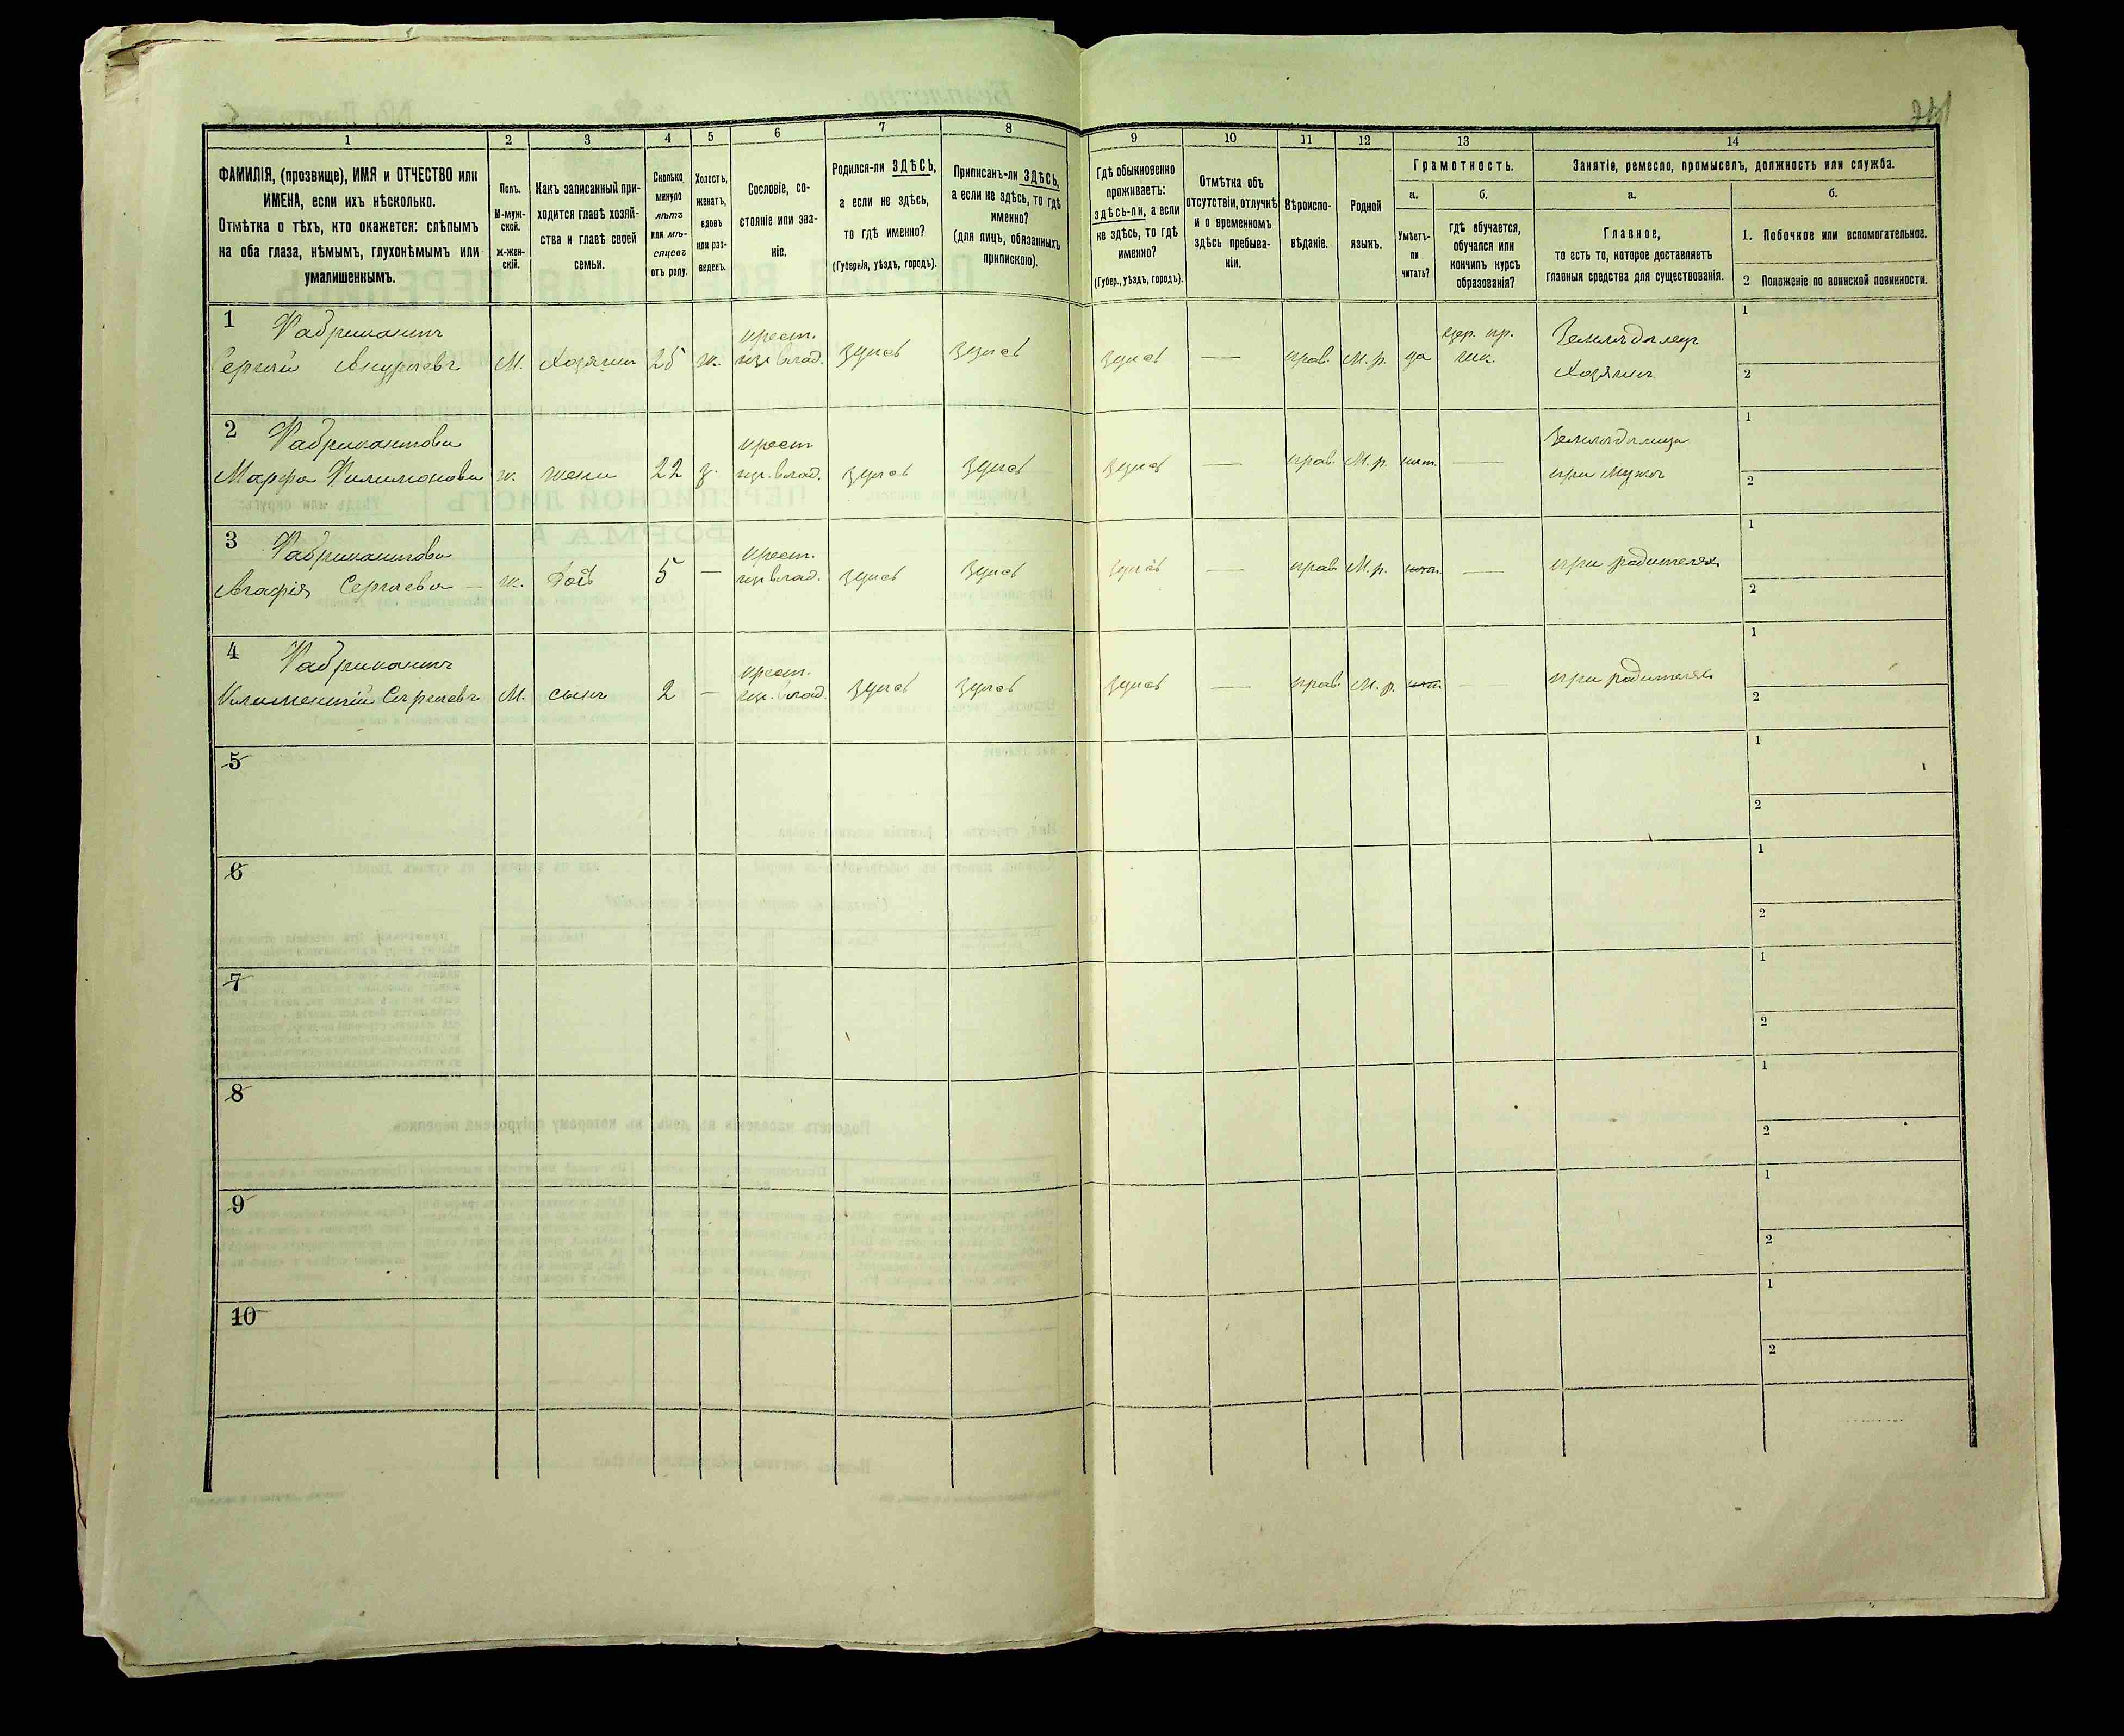 1
2
3
4
5
6
7
8
9
10
11
12
13
14
ФАМИЛІЯ, (прозвище), ИМЯ и ОТЧЕСТВО или
ИМЕНА, если ихъ нѣсколько.
Отмѣтка о тѣхъ, кто окажется: слѣпымъ
на оба глаза, нѣмымъ, глухонѣмымъ или
умалишеннымъ.
Полъ.
М-муж-
ской.
ж-жен-
скій.
Какъ записанный при-
ходится главѣ хозяй-
ства и главѣ своей
семьи.
Сколько
минуло
лѣтъ
или мѣ-
сяцевъ
отъ роду.
Холостъ,
женатъ,
вдовъ
или раз-
веденъ.
Сословіе, со-
стояніе или зва-
ніе.
Родился-ли ЗДѢСЬ,
а если не здѣсь,
то гдѣ именно?
(Губернія, уѣздъ, городъ).
Приписанъ-ли ЗДѢСЬ,
а если не здѣсь, то гдѣ
именно?
(для лицъ, обязанныхъ
припискою).
Гдѣ обыкновенно
проживаетъ:
здѣсь-ли, а если
не здѣсь, то гдѣ
именно?
(Губер., уѣздъ, городъ).
Отмѣтка объ
отсутствіи, отлучкѣ
и о временномъ
здѣсь пребыва-
ніи.
Вѣроиспо-
вѣданіе.
Родной
языкъ.
Грамотность.
а.
Умѣетъ-
ли
читать?
б.
гдѣ обучается,
обучался или
кончилъ курсъ
образованія?
Занятія, ремесло, промыселъ, должность или служба.
а.
Главное,
то есть то, которое доставляетъ
главныя средства для существованія.
б.
1. Побочное или вспомогательное.
2 Положеніе по воинской повинности.
1 Фабрикантъ крест. цер. пр. Земледѣлецъ 1
Сергѣй М. Хозяинъ 25 ж. влад. здѣсь здѣсь здѣсь — прав. М.р. да шк. Хозяинъ 2
2 Фабрикантова крест Земледѣлица 1
Марфа Филимонова ж. жена 22 з. влад. здѣсь здѣсь здѣсь — прав. М.р. нѣт. — при мужѣ 2
3 Фабрикантова крест. 1
Агафія Сергѣева — ж. дочь 5 — влад. здѣсь здѣсь здѣсь — прав. М.р. нѣт. — при родителяхъ 2
4 Фабрикантъ крест. 1
Сергѣевъ М. сынъ 2 — влад. здѣсь здѣсь здѣсь — прав. М.р. нѣт. — при родителяхъ 2
5 1
2
6 1
2
7 1
2
8 1
2
9 1
2
10 1
2